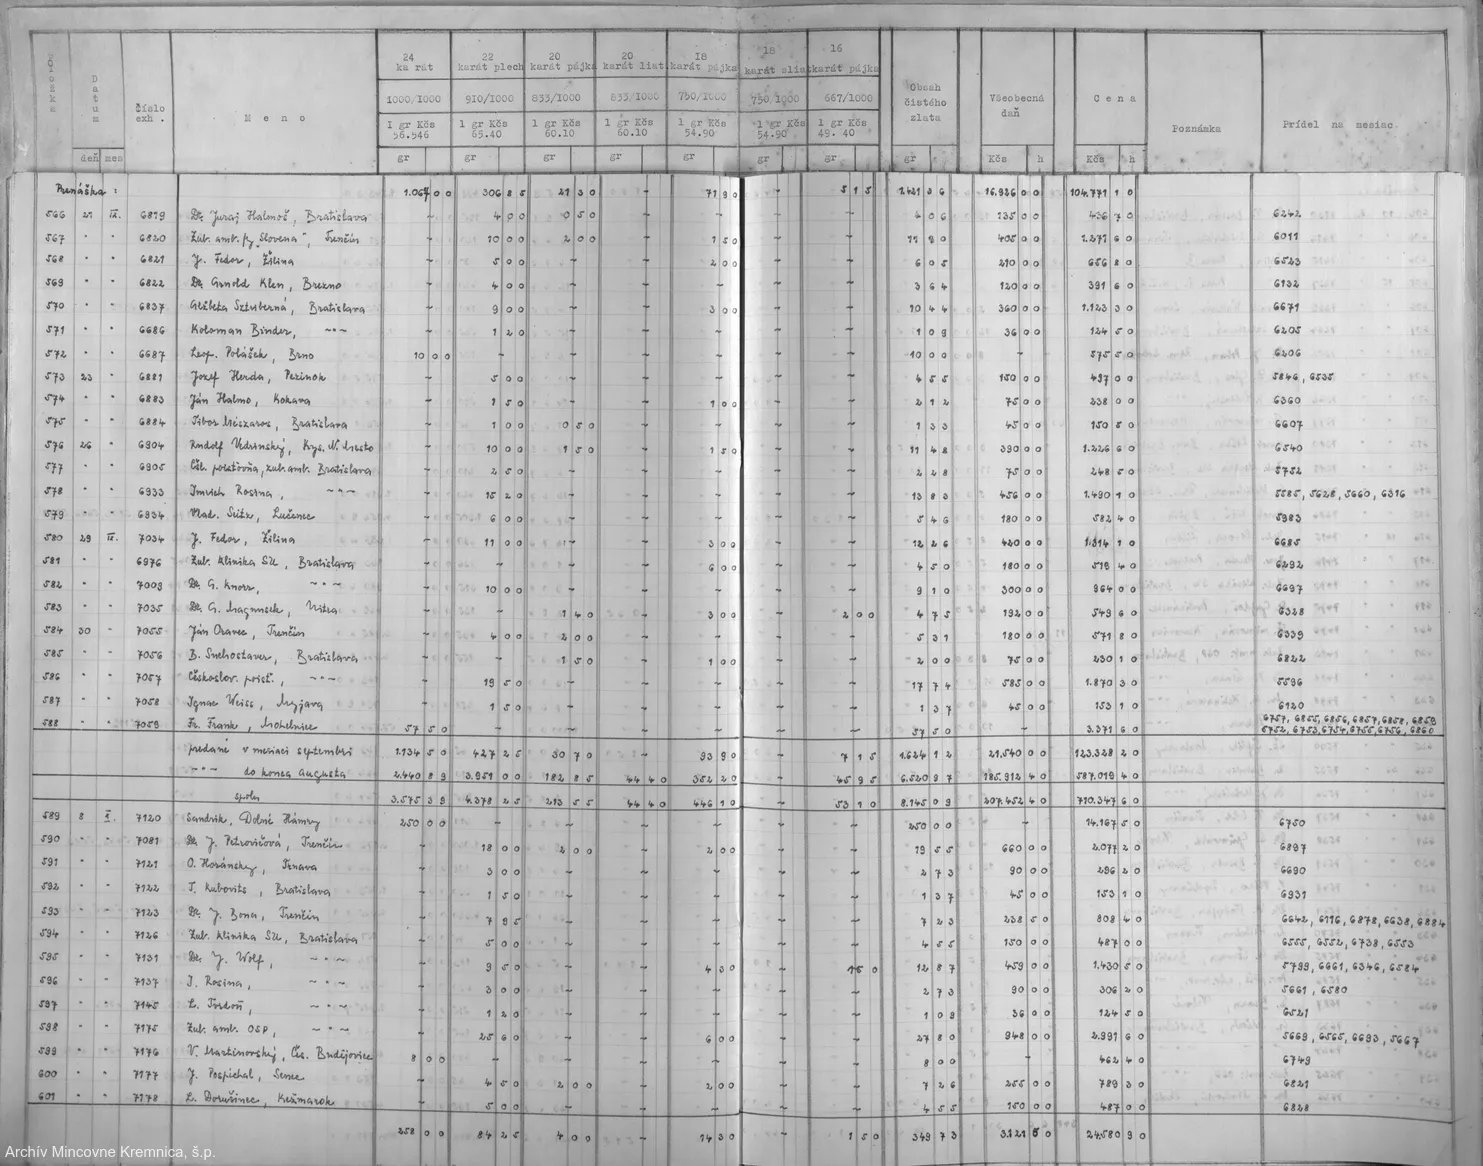 Položka Datum deň mes číslo exh. Meno 24 karát 1000/1000 1 gr Kčs 56.546 gr 22 karát plech 910/1000 1 gr Kčs 65.40 gr 20 karát pájka 833/1000 1 gr Kčs 60.10 gr 20 karát liat. 833/1000 1 gr Kčs 60.10 gr 18 karát pájka 750/1000 1 gr Kčs 54.90 gr 18 karát 750/1000 1 gr Kčs 54.90 gr 16 karát pájka 667/1000 1 gr Kčs 49.40 gr Obsah čistého zlata gr Všeobecná daň Kčs h Cena Kčs h Poznámka Prídel na mesiac
Prenáška : 1.067 00 306 85 21 30 - 71 90 - 5 15 1.421 36 16.926 00 104.771 10
566 21 IX. 6819 Dr. Juraj Halmoš, Bratislava - 4 00 0 50 - - - - 4 06 135 00 436 70 6242
567 " " 6820 Zub. amb. fy „Slovena", Trenčín - 10 00 2 00 - 1 50 - - 11 90 405 00 1.271 60 6011
568 " " 6821 J. Fedor, Žilina - 5 00 - - 2 00 - - 6 05 210 00 656 80 6523
569 " " 6822 Dr. Arnold Klen, Brezno - 4 00 - - - - - 3 64 120 00 391 60 6132
570 " " 6837 Alžbeta Sztuberná, Bratislava - 9 00 - - 3 00 - - 10 44 360 00 1.123 30 6671
571 " " 6686 Koloman Binder, -"- - 1 20 - - - - - 1 09 36 00 124 50 6205
572 " " 6687 Leop. Polášek, Brno 10 00 - - - - - - 10 00 - 575 50 6206
573 23 " 6881 Jozef Herda, Pezinok - 5 00 - - - - - 4 55 150 00 497 00 5846, 6535
574 " " 6883 Ján Halmo, Kokava - 1 50 - - 1 00 - - 2 12 75 00 238 00 6360
575 " " 6884 Tibor Mészaros, Bratislava - 1 00 0 50 - - - - 1 33 45 00 150 50 6607
576 26 " 6904 Rudolf Vedrinský, Kys. N. Mesto - 10 00 1 50 - 1 50 - - 11 48 390 00 1.226 60 6540
577 " " 6905 Čsl. poisťovňa, zub. amb. Bratislava - 2 50 - - - - - 2 28 75 00 248 50 5752
578 " " 6933 Imrich Rosina, -"- - 15 20 - - - - - 13 83 456 00 1.490 10 5585, 5628, 5660, 6316
579 " " 6934 Vlad. Seitz, Lučenec - 6 00 - - - - - 5 46 180 00 582 40 5983
580 29 IX. 7034 J. Fedor, Žilina - 11 00 - - 3 00 - - 12 26 420 00 1.314 10 6685
581 " " 6976 Zub. klinika SU, Bratislava - - - - 6 00 - - 4 50 180 00 519 40 6292
582 " " 7003 Dr. G. Knorr, -"- - 10 00 - - - - - 9 10 300 00 964 00 6697
583 " " 7035 Dr. G. Magnusek, Nitra - - 1 40 - 3 00 - 2 00 4 75 192 00 549 60 6328
584 30 " 7055 Ján Oravec, Trenčín - 4 00 2 00 - - - - 5 31 180 00 571 80 6339
585 " " 7056 B. Snehostaver, Bratislava - - 1 50 - 1 00 - - 2 00 75 00 230 10 6822
586 " " 7057 Českoslov. poisť., -"- - 19 50 - - - - - 17 74 585 00 1.870 30 5596
587 " " 7058 Ignac Weiss, Myjava - 1 50 - - - - - 1 37 45 00 153 10 6120
588 " " 7059 Fr. Frank, Mohelnice 57 50 - - - - - - 57 50 - 3.371 60 6757, 6855, 6856, 6857, 6858, 6859
5752, 6753, 6754, 6755, 6756, 6860
predané v mesiaci septembri 1.134 50 427 25 30 70 - 93 90 - 7 15 1.624 12 21.540 00 123.328 20
-"- do konca augusta 2.440 89 3.951 00 182 85 44 40 352 20 - 45 95 6.520 97 185.912 40 587.019 40
spolu 3.575 39 4.378 25 213 55 44 40 446 10 - 53 10 8.145 09 207.452 40 710.347 60
589 8 X. 7120 Sandrik, Dolné Hámry 250 00 - - - - - - 250 00 - 14.167 50 6750
590 " " 7081 Dr. J. Petrovičová, Trenčín - 18 00 2 00 - 2 00 - - 19 55 660 00 2.077 20 6897
591 " " 7121 O. Horánsky, Trnava - 3 00 - - - - - 2 73 90 00 296 20 6690
592 " " 7122 T. Kubovits, Bratislava - 1 50 - - - - - 1 37 45 00 153 10 6931
593 " " 7123 Dr. J. Bona, Trenčín - 7 95 - - - - - 7 23 238 50 808 40 6642, 6116, 6878, 6638, 6884
594 " " 7126 Zub. klinika SU, Bratislava - 5 00 - - - - - 4 55 150 00 487 00 6555, 6552, 6738, 6553
595 " " 7131 Dr. J. Wolf, -"- - 9 50 - - 4 30 - 1 50 12 87 459 00 1.430 50 5799, 6661, 6346, 6584
596 " " 7137 I. Rosina, -"- - 3 00 - - - - - 2 73 90 00 306 20 5661, 6580
597 " " 7145 L. Tvrdoň, -"- - 1 20 - - - - - 1 09 36 00 124 50 6521
598 " " 7175 Zub. amb. OSP, -"- - 25 60 - - 6 00 - - 27 80 948 00 2.991 60 5669, 6565, 6693, 5667
599 " " 7176 V. Martinovský, Čes. Budějovice 8 00 - - - - - - 8 00 - 462 40 6749
600 " " 7177 J. Pospichal, Senec - 4 50 2 00 - 2 00 - - 7 26 255 00 789 30 6821
601 " " 7178 L. Dorušinec, Kežmarok - 5 00 - - - - - 4 55 150 00 487 00 6828
258 00 84 25 4 00 - 14 30 - 1 50 349 73 3.121 50 24.580 90
Archív Mincovne Kremnica, š.p.